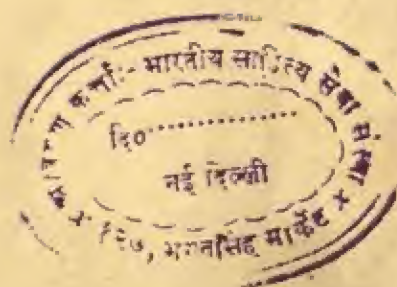 कर्त्ता:- भारतीय साहित्य सेवा संस्था ×
दि०................
नई दिल्ली
× १२७, भगतसिंह मार्केट ×